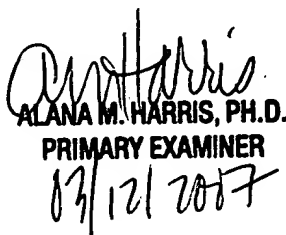 ALANA M. HARRIS, PH.D.
PRIMARY EXAMINER
03/12/2007